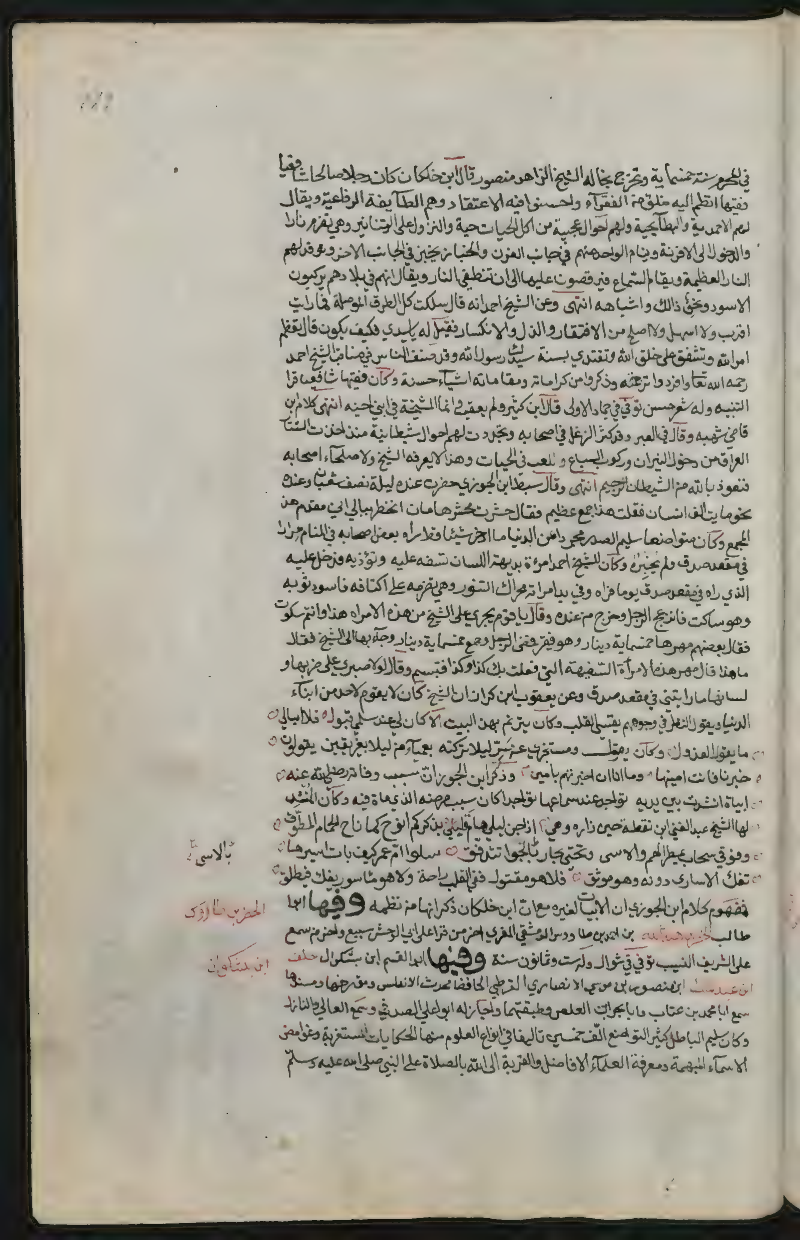 في المحرم سنة خمسماية وتخرج بخاله الشيخ الزاهد منصور قال ابن خلكان كان رجلا صالحا شافعيا
فقيها انظم اليه خلق من الفقراء واحسنوا فيه الاعتقاد وهم الطآيفة الرفاعية ويقال
لهم الاحمدية والبطآيحية ولهم احوال عجيبة من اكل الحيات حية والنزول على التنانير وهي تضرم نارا
والدخول الى الافرنة وينام الواحد منهم في جانب الفرن والخباز يخبز في الجانب الاخر وتوقد لهم
النار العظيمة ويقام السماع فيرقصون عليها الى ان تنطفي النار ويقال انهم في بلادهم يركبون
الاسود ونحو ذالك واشباهه انتهى وعن الشيخ احمد انه قال سلكت كل الطرق الموصلة فما رايت
اقرب ولا اسهل ولا اصلح من الافتقار والذل والانكسار فقيل له ياسيدي فكيف يكون قال تعظم
امر الله وتشفق على خلق الله وتقتدي بسنة سيدنا رسول الله وقد صنف الناس في مناقب الشيخ احمد
رحمه الله تعا وافردوا ترجمته وذكروا من كراماته ومقاماته اشيآء حسنة وكان فقيها شافعيا قرا
التنبيه وله شعر حسن توفي في جماد الاولى قال ابن كثير ولم يعقب وانما المشيخة في ابني اخيه انتهى كلام ابن
قاضي شهبه وقال في العبر وقد كثر الزغل في اصحابه وتجددت لهم احوال شيطانية منذ اخذت التتار
العراق من دخول النيران وركوب السباع واللعب في الحيات وهذا لا يعرفه الشيخ ولا صلحآء اصحابه
فنعوذ بالله من الشيطان الرجيم انتهى وقال سبط ابن الجوزي حضرت عنده ليلة نصف شعبان وعنده
نحو ماية الف انسان فقلت هذا جمع عظيم فقال حشرت محشر هامان ان خطر ببالي اني مقدم هذا
الجمع وكان متواضعا سليم الصدر مجردا من الدنيا ما ادخر شيئا قط راه بعض اصحابه في المنام مرارا
في مقعد صدق ولم يخبره وكان للشيخ احمد امراة بذيهة اللسان تسفه عليه وتؤذيه فدخل عليه
الذي راه في مقعد صدق يوما فراه وفي يد امراته محراك التنور وهي تضربه على اكتافه فاسود ثوبه
وهو ساكت فانزعج الرجل وخرج من عنده وقال يا قوم يجري على الشيخ من هذه الامراه هذا وانتم سكوت
فقال بعضهم مهرها خمسماية دينار وهو فقير فمضى الرجل وجمع خمسماية دينار وجآء بها الى الشيخ فقال
ما هذا قال مهر هذه الامرأة السفيهة التي فعلت بك كذا وكذا فتبسم وقال لولا صبري على ضربها و
لسانها ما رايتني في مقعد صدق وعن يعقوب ابن كراز ان الشيخ كان لا يقوم لاحد من ابنآء
الدنيا ويقول النظر في وجوههم يقسي القلب وكان يترنم بهذا البيت ان كان لي عند سلمى قبول فلا ابالي
ما يقول العذول وكان يقول ومستخبري عن سر ليلا تركته بعميآء من ليلا بغير يقين يقولون
خبرنا فانت امينها وما انا ان اخبرتهم بامين وذكر ابن الجوزي ان سبب وفاته رضي الله عنه
ابيات انشدت بين يديه تواجد عند سماعها تواجدا كان سبب مرضه الذي مات فيه وكان المنشد
لها الشيخ عبد الغني ابن نقطه حين زاره وهي اذا جن ليلي هام قلبي بذكركم انوح كما ناح الحمام المطوق
وفوقي سحاب يمطر الهم والاسى وتحتي بحار بالجوا تتدفق سلوا ام عمرو كيف بات اسيرها
بالاسى
تفك الاسارى دونه وهو موثق فلا هو مقتول ففي القتل راحة ولا هو مأسور يفك فيطلق
فمفهوم كلام ابن الجوزي ان الابيات لغيره مع ان ابن خلكان ذكر انها من نظمه وفيها ابا
الخضر بن طاووك
طالب الخضر بن هبة الله بن احمد بن طاووس الدمشقي المقري اخر من قرا على ابي الوحش سبيع واخر من سمع
على الشريف النسيب توفي في شوال وله ست وثمانون سنة وفيها ابو القسم ابن بشكوال خلف
ابن بشكوان
ابن عبد الملك ابن مسعود بن موسى الانصاري القرطبي الحافظ محدث الاندلس ومؤرخها ومسندها
سمع ابا محمد بن عتاب وابا بحر ابن العاص وطبقتهما واجاز له ابو علي الصدفي وسمع العالي والنازل
وكان سليم الباطن كثير التواضع الف خمسين تاليفا في انواع العلوم منها الحكايات المستغربة وغوامض
الاسمآء المبهمة ومعرفة العلمآء الافاضل والقربة الى الله بالصلاة على النبي صلى الله عليه وسلم